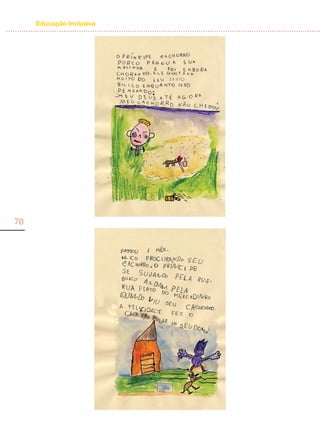 Educação Inclusiva
O PRÍNCIPE CACHORRO
PORCO PEGOU A SUA
MALINHA E FOI EMBORA
CHORANDO. ELE GOSTAVA
MUITO DO SEU
BILICO ENQUANTO ISSO
PENSANDO:
— MEU DEUS ATÉ AGORA
MEU CACHORRO NÃO CHEGOU
70
PASSOU 1 MÊS.
BILICO PROCURANDO SEU
CACHORRO. O PRÍNCIPE
SE SUJANDO PELA RUA.
BILICO ANDAVA PELA
RUA PERTO DO MERCADINHO
QUANDO VIU SEU CACHORRO.
A FELICIDADE FEZ O
CACHORRO PULAR NO SEU DONO